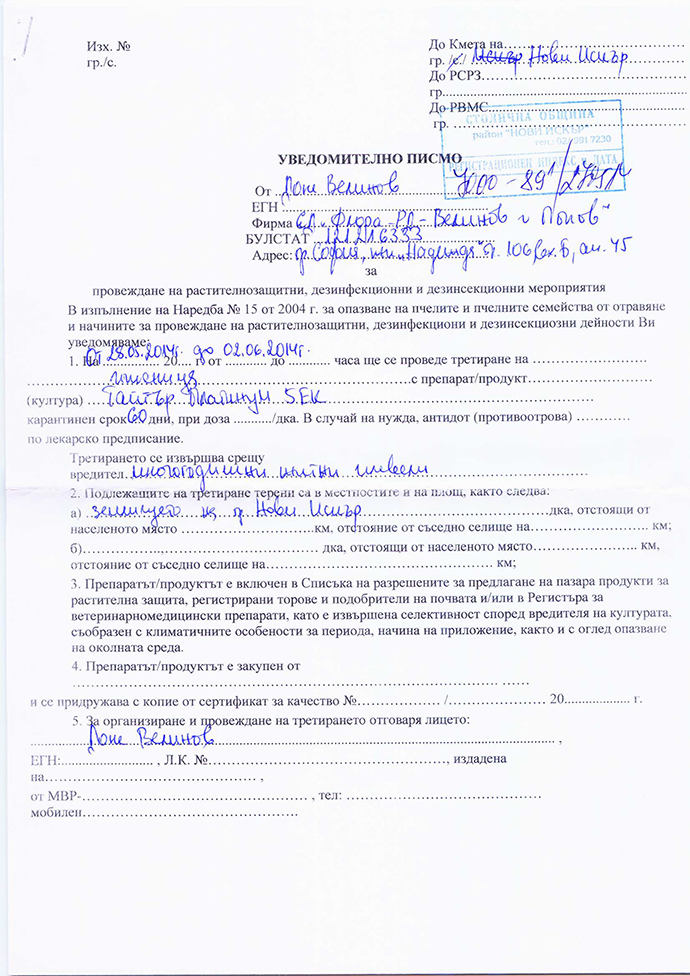 Изх. №
гр./с.
До Кмета на
гр. /с./ Искър Нови Искър
До РСРЗ
гр.
До РВМС
гр.
СТОЛИЧНА ОБЩИНА
район "НОВИ ИСКЪР"
тел.: 02/991 7230
РЕГИСТРАЦИОНЕН ИНДЕКС И ДАТА
УВЕДОМИТЕЛНО ПИСМО
От Доне Велинов
ЕГН
Фирма СД "Флора-РД-Велинов и Попов"
БУЛСТАТ 121216333
Адрес: гр. София, жк. "Надежда" бл. 106, вх. Б, ап. 45
за
провеждане на растителнозащитни, дезинфекционни и дезинсекционни мероприятия
В изпълнение на Наредба № 15 от 2004 г. за опазване на пчелите и пчелните семейства от отравяне
и начините за провеждане на растителнозащитни, дезинфекциони и дезинсекциозни дейности Ви
уведомяваме:
От 28.05.2014г. до 02.06.2014г.
1. На ............... 20.... г. от ............ до ............ часа ще се проведе третиране на
пшеница с препарат/продукт
(култура) Тайгър Платинум 5ЕК
карантинен срок 60 дни, при доза .........../дка. В случай на нужда, антидот (противоотрова) …………
по лекарско предписание.
Третирането се извършва срещу
вредител многогодишни житни плевели
2. Подлежащите на третиране терени са в местностите и на площ, както следва:
а) землището на гр. Нови Искър дка, отстоящи от
населеното място ……………………………км, отстояние от съседно селище на………………………… км;
б)…………………………………… дка, отстоящи от населеното място…………………... км,
отстояние от съседно селище на………………………………………………… км;
3. Препаратът/продуктът е включен в Списъка на разрешените за предлагане на пазара продукти за
растителна защита, регистрирани торове и подобрители на почвата и/или в Регистъра за
ветеринарномедицински препарати, като е извършена селективност според вредителя на културата.
съобразен с климатичните особености за периода, начина на приложение, както и с оглед опазване
на околната среда.
4. Препаратът/продуктът е закупен от
и се придружава с копие от сертификат за качество №……………… /………………… 20................... г.
5. За организиране и провеждане на третирането отговаря лицето:
Доне Велинов
ЕГН:........................... , Л.К. №……………………………………………, издадена
на……………………………………… ,
от МВР-………………………………………… , тел: ……………………………………
мобилен……………………………………….